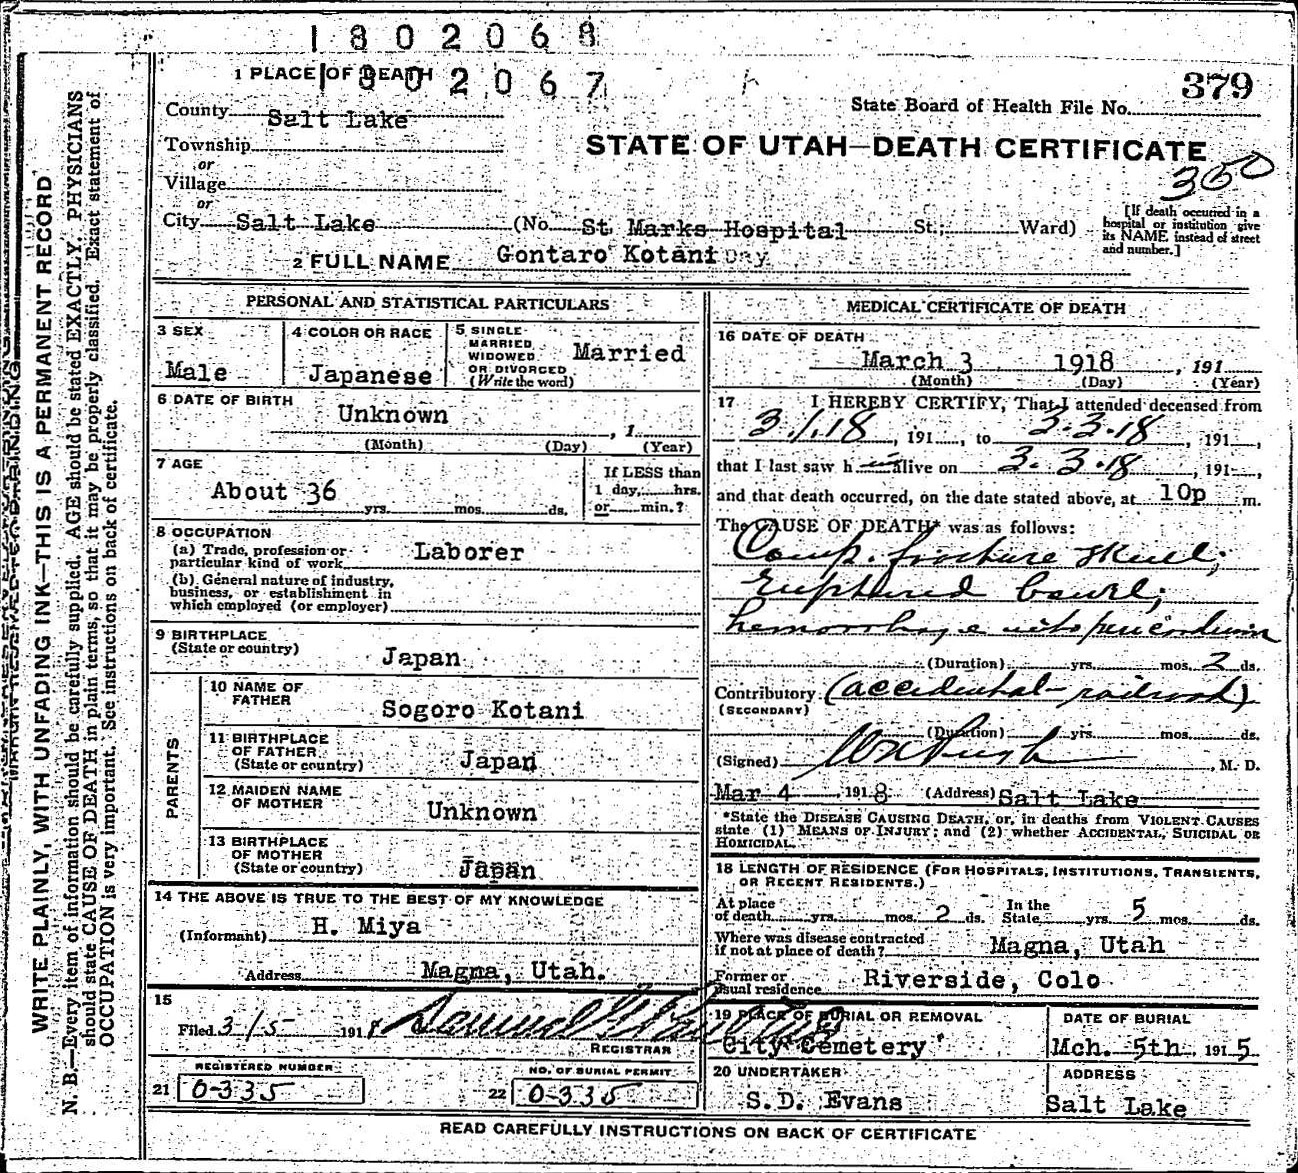 1802068
1802067
1 PLACE OF DEATH
379
State Board of Health File No.
County Salt Lake
STATE OF UTAH—DEATH CERTIFICATE
Township
or
350
Village
or
City Salt Lake (No. St. Marks Hospital St.; Ward)
[If death occurred in a hospital or institution give its NAME instead of street and number.]
2 FULL NAME Gontaro Kotani
PERSONAL AND STATISTICAL PARTICULARS
3 SEX
Male
4 COLOR OR RACE
Japanese
5 SINGLE
MARRIED
WIDOWED
OR DIVORCED
(Write the word)
Married
6 DATE OF BIRTH
Unknown , 1
(Month) (Day) (Year)
7 AGE
About 36
yrs. mos. ds.
If LESS than
1 day, hrs.
or min.?
8 OCCUPATION
(a) Trade, profession or
particular kind of work Laborer
(b) General nature of industry,
business, or establishment in
which employed (or employer)
9 BIRTHPLACE
(State or country)
Japan
PARENTS
10 NAME OF
FATHER
Sogoro Kotani
11 BIRTHPLACE
OF FATHER
(State or country)
Japan
12 MAIDEN NAME
OF MOTHER
Unknown
13 BIRTHPLACE
OF MOTHER
(State or country)
Japan
14 THE ABOVE IS TRUE TO THE BEST OF MY KNOWLEDGE
(Informant) H. Miya
Address Magna, Utah.
15
Filed 3/5 1918
REGISTRAR
REGISTERED NUMBER
21 0-335
NO. OF BURIAL PERMIT
22 0-335
MEDICAL CERTIFICATE OF DEATH
16 DATE OF DEATH
March 3 1918 , 191
(Month) (Day) (Year)
17 I HEREBY CERTIFY, That I attended deceased from
3.1.18 , 191 , to 3.3.18 , 191 ,
that I last saw h im alive on 3.3.18 , 191 ,
and that death occurred, on the date stated above, at 10p m.
The CAUSE OF DEATH* was as follows:
Comp. fracture skull;
ruptured bowel;
hemorrhage into pericardium
(Duration) yrs. mos. 2 ds.
Contributory (accidental-railroad)
(SECONDARY)
(Duration) yrs. mos. ds.
(Signed) , M. D.
Mar 4 1918 (Address) Salt Lake
*State the DISEASE CAUSING DEATH, or, in deaths from VIOLENT CAUSES
state (1) MEANS OF INJURY; and (2) whether ACCIDENTAL, SUICIDAL OR
HOMICIDAL.
18 LENGTH OF RESIDENCE (FOR HOSPITALS, INSTITUTIONS, TRANSIENTS,
OR RECENT RESIDENTS.)
At place
of death yrs. mos. 2 ds. In the
State yrs. 5 mos. ds.
Where was disease contracted
if not at place of death? Magna, Utah
Former or
usual residence Riverside, Colo
19 PLACE OF BURIAL OR REMOVAL
City Cemetery
DATE OF BURIAL
Mch. 5th, 1915
20 UNDERTAKER
S.D. Evans
ADDRESS
Salt Lake
READ CAREFULLY INSTRUCTIONS ON BACK OF CERTIFICATE
WRITE PLAINLY, WITH UNFADING INK—THIS IS A PERMANENT RECORD
N. B.—Every item of information should be carefully supplied. AGE should be stated EXACTLY. PHYSICIANS
should state CAUSE OF DEATH in plain terms, so that it may be properly classified. Exact statement of
OCCUPATION is very important. See instructions on back of certificate.